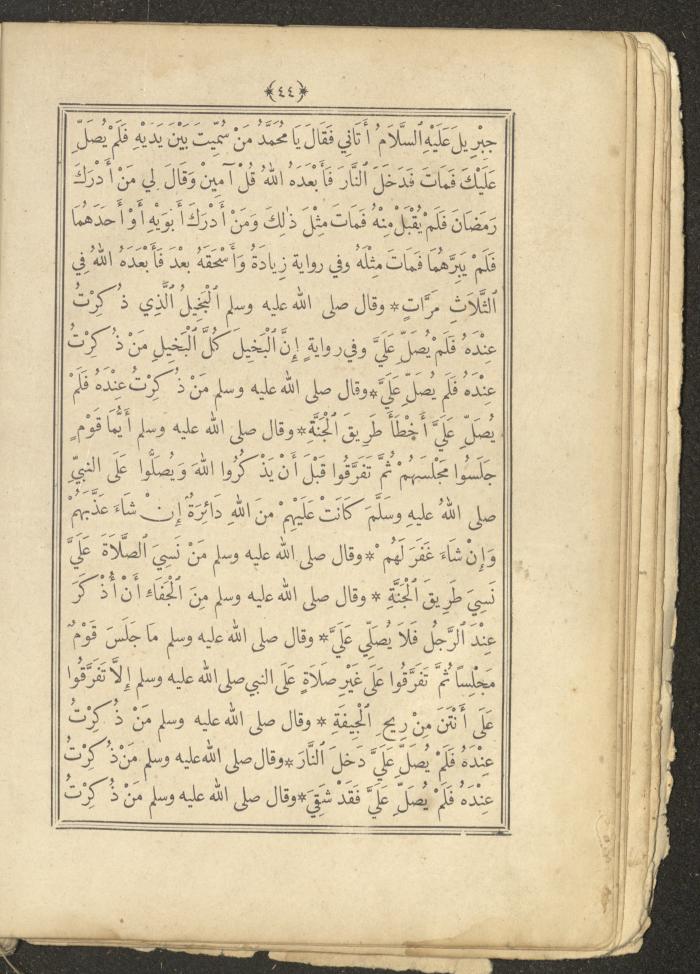 ﴿٤٤﴾
جِبْرِيلَ عَلَيْهِ ٱلسَّلَامُ أَتَانِي فَقَالَ يَا مُحَمَّدُ مَنْ سُمِّيتَ بَيْنَ يَدَيْهِ فَلَمْ يُصَلِّ
عَلَيْكَ فَمَاتَ فَدَخَلَ ٱلنَّارَ فَأَبْعَدَهُ ٱللهُ قُلْ آمِينْ وَقَالَ لِي مَنْ أَدْرَكَ
رَمَضَانَ فَلَمْ يُقْبَلْ مِنْهُ فَمَاتَ مِثْلَ ذٰلِكَ وَمَنْ أَدْرَكَ أَبَوَيْهِ أَوْ أَحَدَهُمَا
فَلَمْ يَبِرَّهُمَا فَمَاتَ مِثْلَهُ وفي رواية زِيَادَةُ وَأَسْحَقَهُ بعْدَ فَأَبْعَدَهُ ٱللهُ فِي
ٱلثَّلَاثِ مَرَّاتٍ * وقال صلى الله عليه وسلم ٱلْبَخِيلُ ٱلَّذِي ذُكِرْتُ
عِنْدَهُ فَلَمْ يُصَلِّ عَلَيَّ وفي رواية إِنَّ ٱلْبَخِيلَ كُلَّ ٱلْبَخِيلِ مَنْ ذُكِرْتُ
عِنْدَهُ فَلَمْ يُصَلِّ عَلَيَّ * وقال صلى الله عليه وسلم مَنْ ذُكِرْتُ عِنْدَهُ فَلَمْ
يُصَلِّ عَلَيَّ أَخْطَأَ طَرِيقَ ٱلْجَنَّةِ * وقال صلى الله عليه وسلم أَيُّمَا قَوْمٍ
جَلَسُوا مَجْلِسَهُمْ ثُمَّ تَفَرَّقُوا قَبْلَ أَنْ يَذْكُرُوا ٱللهَ وَيُصَلُّوا عَلَى النبيِّ
صلى اللهُ عليهِ وسَلَّمَ كَانَتْ عَلَيْهِمْ منَ اللهِ دَائِرَةٌ إِنْ شَاءَ عَذَّبَهُمْ
وَإِنْ شَاءَ غَفَرَ لَهُمْ * وقال صلى الله عليه وسلم مَنْ نَسِيَ ٱلصَّلَاةَ عَلَيَّ
نَسِيَ طَرِيقَ ٱلْجَنَّةِ * وقال صلى الله عليه وسلم مِنَ ٱلْجَفَاءِ أَنْ أُذْكَرَ
عِنْدَ ٱلرَّجُلُ فَلَا يُصَلِّي عَلَيَّ * وقال صلى الله عليه وسلم مَا جَلَسَ قَوْمٌ
مَجْلِسًا ثُمَّ تَفَرَّقُوا عَلَى غَيْرِ صَلَاةٍ عَلَى النبي صلى الله عليه وسلم إِلَّا تَفَرَّقُوا
عَلَى أَنْتَنَ مِنْ رِيحِ ٱلْجِيفَةِ * وقال صلى الله عليه وسلم مَنْ ذُكِرْتُ
عِنْدَهُ فَلَمْ يُصَلِّ عَلَيَّ دَخَلَ ٱلنَّارَ * وقال صلى الله عليه وسلم مَنْ ذُكِرْتُ
عِنْدَهُ فَلَمْ يُصَلِّ عَلَيَّ فَقَدْ شَقِيَ * وقال صلى الله عليه وسلم مَنْ ذُكِرْتُ